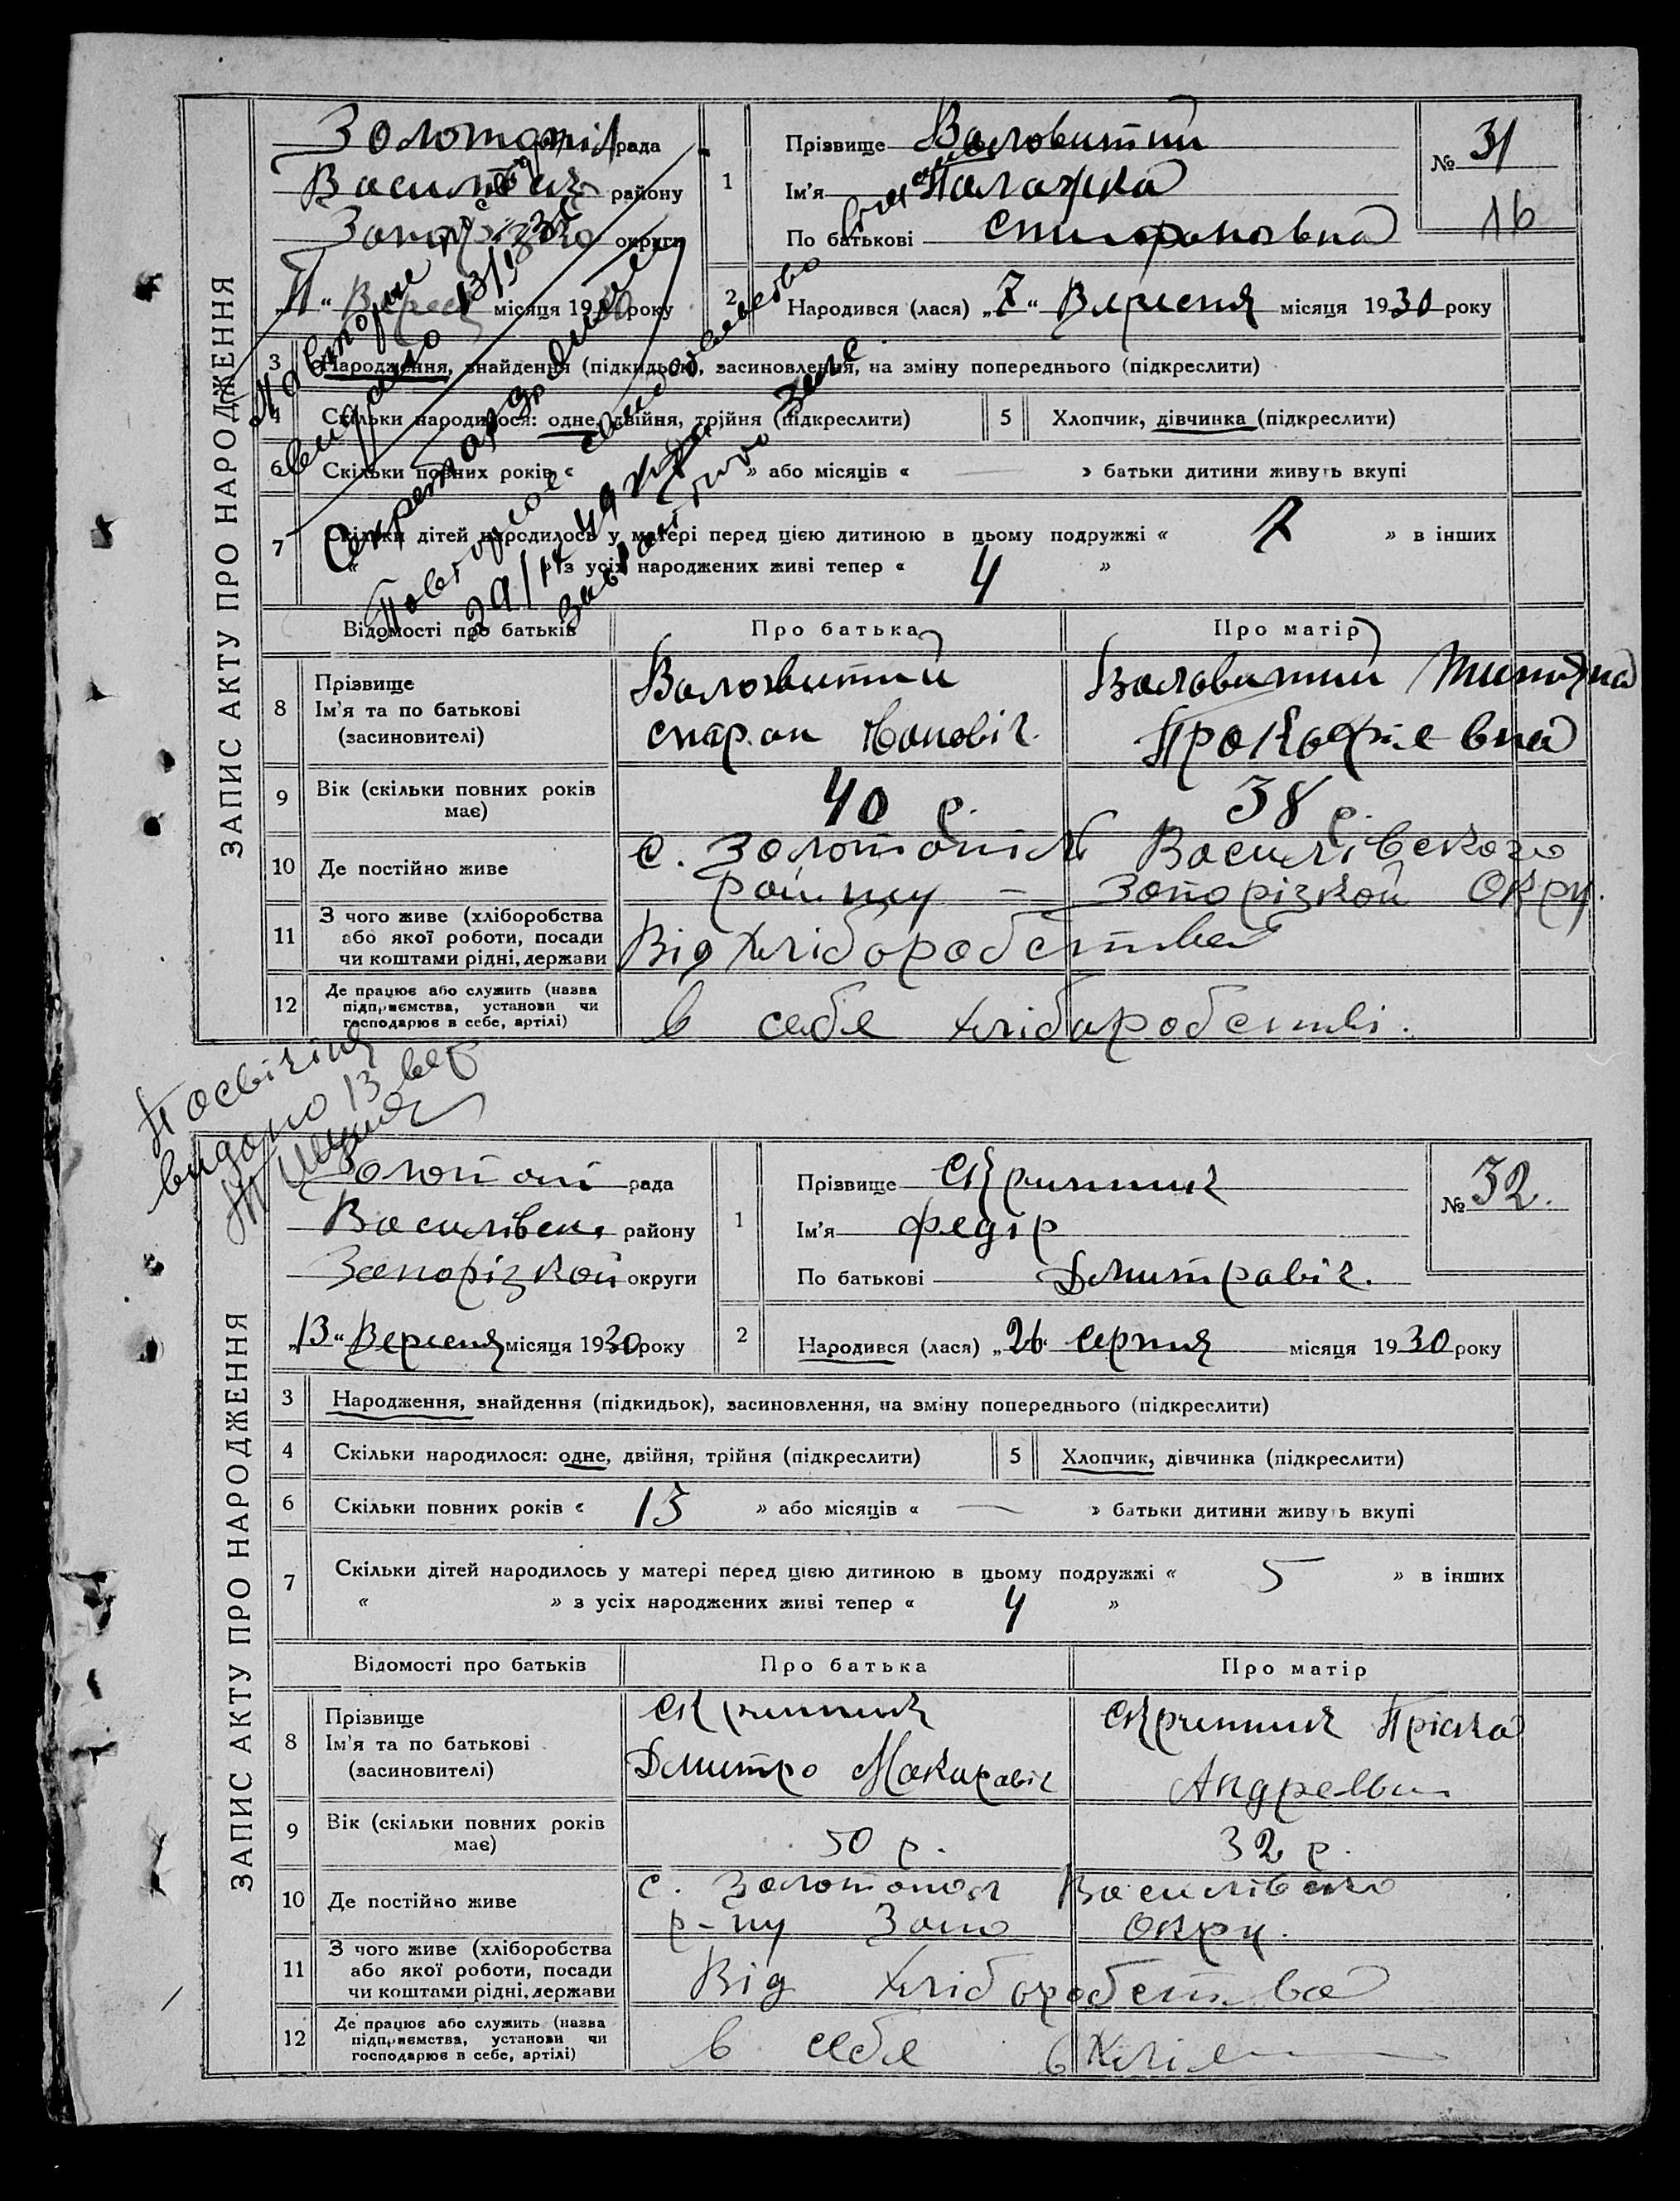 ЗАПИС АКТУ ПРО НАРОДЖЕННЯ
Золотопіл рада
Васильвск району
Запорізко округи
„11“ Верес місяця 1930 року
1 Прізвище Воловитий
Ім'я Палажка
По батькові
№ 31
16
2 Народився (лася) „7“ Вересня місяця 1930 року
3 Народження, знайдення (підкидьок), засиновлення, на зміну попереднього (підкреслити)
4 Скільки народилося: одне, двійня, трійня (підкреслити)
5 Хлопчик, дівчинка (підкреслити)
6 Скільки повних років « » або місяців « — » батьки дитини живуть вкупі
7 Скільки дітей народилось у матері перед цією дитиною в цьому подружжі « 7 » в інших
« » з усіх народжених живі тепер « 4 »
Повторне
видано 13/
Секретар
Повторное свидетельство
29/
Відомості про батьків Про батька Про матір
8 Прізвище
Ім'я та по батькові
(засиновителі)
Воловитий
Воловитий
Прокофіевна
9 Вік (скільки повних років має)
40 р. 38 р.
10 Де постійно живе
с. Золотопіль Василівского
району — Запорізкой Окру.
11 З чого живе (хліборобства або якої роботи, посади чи коштами рідні, держави
Від хліборобства
12 Де працює або служить (назва підприємства, установи чи господарює в себе, артілі)
в себе хліборобстві.
Посвічіня
видано 13 вер
ЗАПИС АКТУ ПРО НАРОДЖЕННЯ
Золотопі рада
Василівск. району
Запорізкой округи
„13“ Вересня місяця 1930 року
1 Прізвище Скрипник
Ім'я Федір
По батькові Дмитравіч.
№ 32.
2 Народився (лася) „26“ Серпня місяця 1930 року
3 Народження, знайдення (підкидьок), засиновлення, на зміну попереднього (підкреслити)
4 Скільки народилося: одне, двійня, трійня (підкреслити)
5 Хлопчик, дівчинка (підкреслити)
6 Скільки повних років « 13 » або місяців « — » батьки дитини живуть вкупі
7 Скільки дітей народилось у матері перед цією дитиною в цьому подружжі « 5 » в інших
« » з усіх народжених живі тепер « 4 »
Відомості про батьків Про батька Про матір
8 Прізвище
Ім'я та по батькові
(засиновителі)
Скрипник
Дмитро Макаравіч
Скрипник Пріська
Андреевн
9 Вік (скільки повних років має)
50 р. 32 р.
10 Де постійно живе
с. Золотопол Василівско
р-ну Запо Окру.
11 З чого живе (хліборобства або якої роботи, посади чи коштами рідні, держави
Від хліборобства
12 Де працює або служить (назва підприємства, установи чи господарює в себе, артілі)
в себе в хлі